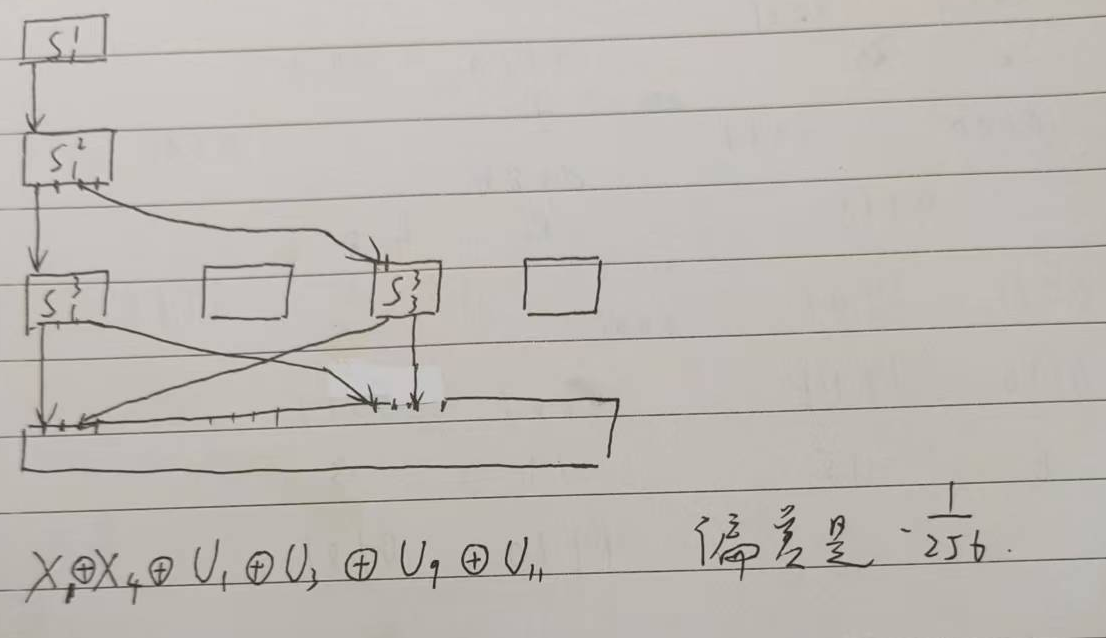 S₁¹
S₁²
S₁³ S₃³
X₁⊕X₄⊕U₁⊕U₃⊕U₉⊕U₁₁ 偏差是 -1/256.